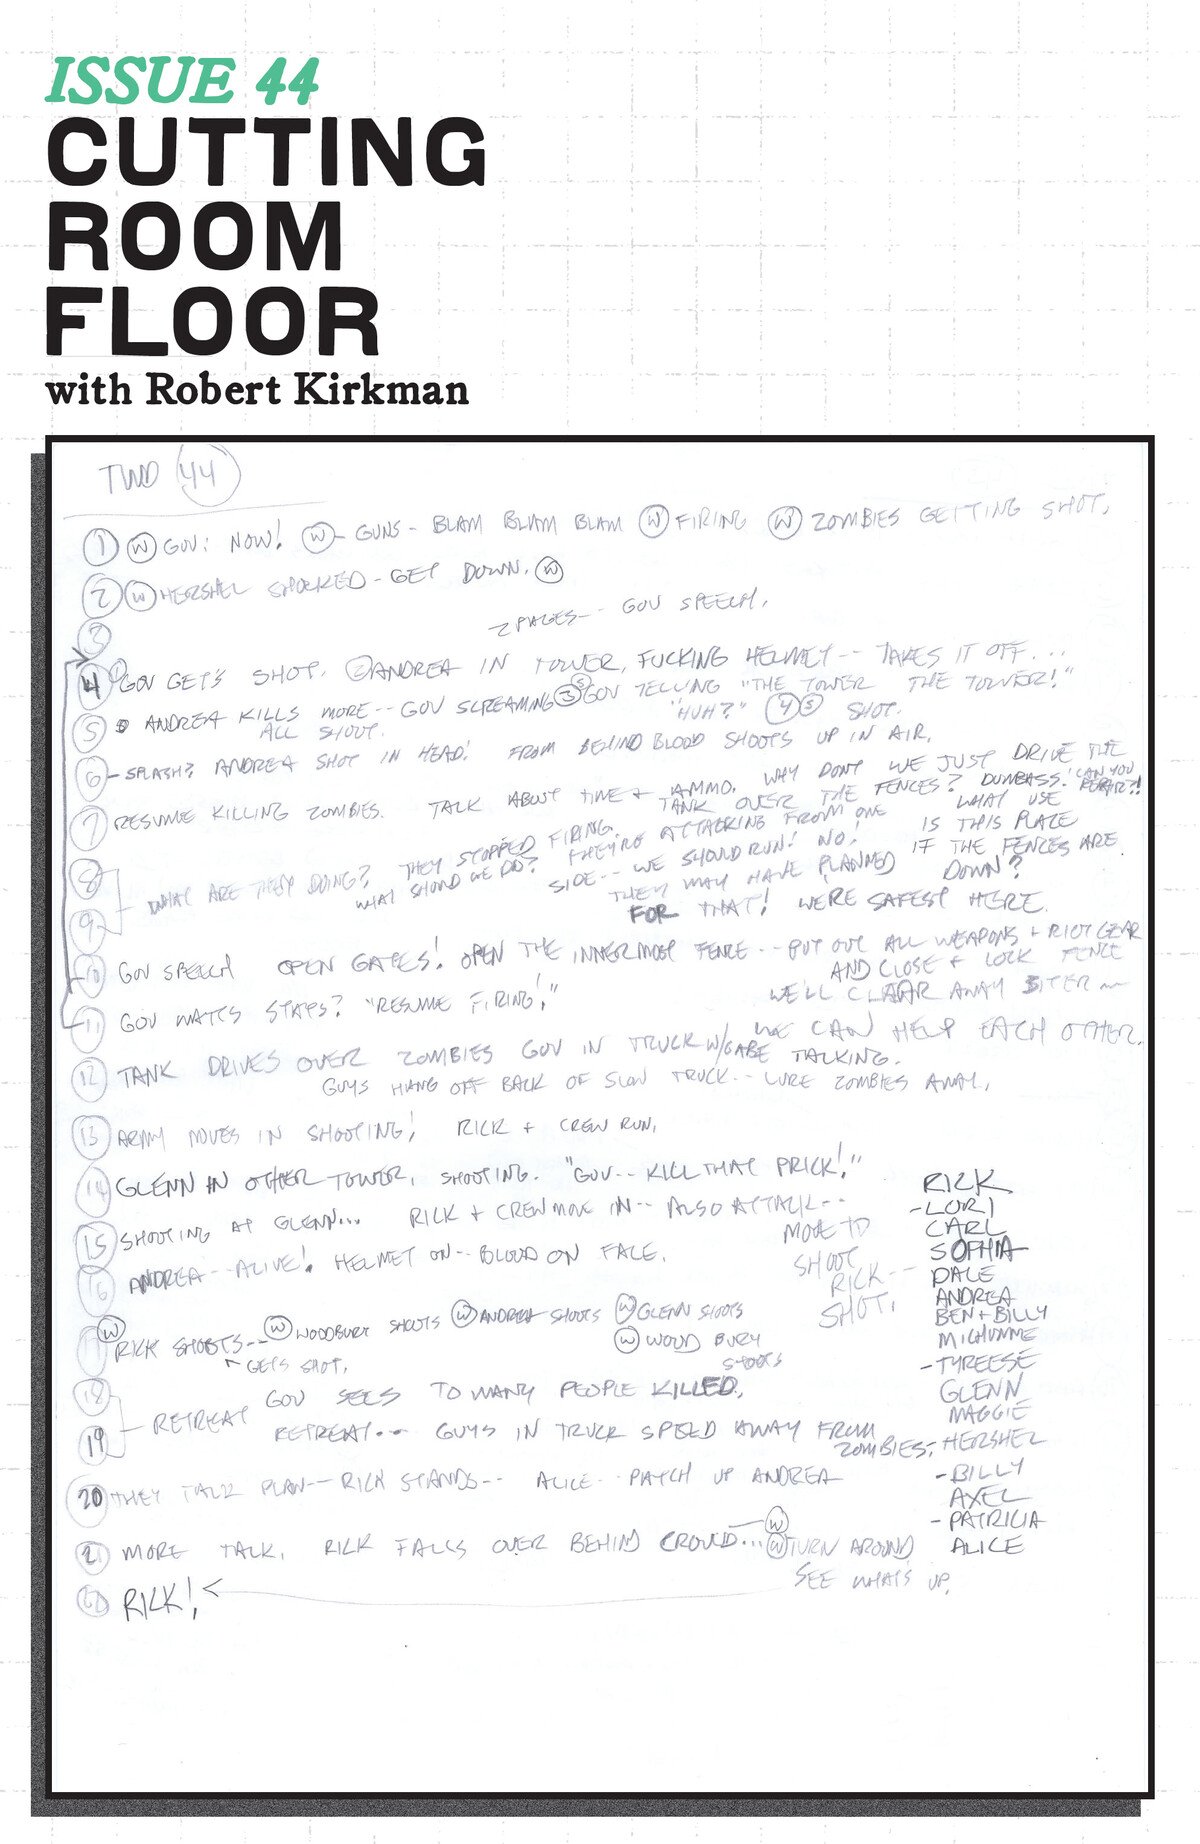 ISSUE 44
CUTTING
ROOM
FLOOR
with Robert Kirkman
TWD 44
1 W GOV: NOW! W - GUNS - BLAM BLAM BLAM W FIRING W ZOMBIES GETTING SHOT.
2 W HERSHEL SHOCKED - GET DOWN. W
3 2 PAGES -- GOV SPEECH.
4 1 GOV GETS SHOT. 2 ANDREA IN TOWER, FUCKING HELMET -- TAKES IT OFF...
3 GOV TELLING "THE TOWER THE TOWER!"
5 ANDREA KILLS MORE -- GOV SCREAMING "HUH?" 4 5 SHOT.
ALL SHOOT.
6 - SPLASH? ANDREA SHOT IN HEAD! FROM BEHIND BLOOD SHOOTS UP IN AIR.
7 RESUME KILLING ZOMBIES. TALK ABOUT TIME + AMMO. WHY DONT WE JUST DRIVE THE
TANK OVER THE FENCES? DUMBASS! CAN YOU REPAIR?!
WHAT USE
IS THIS PLACE
IF THE FENCES ARE
DOWN?
8
9
WHAT ARE THEY DOING? THEY STOPPED FIRING.
WHAT SHOULD WE DO? THEY'RE ATTACKING FROM ONE
SIDE -- WE SHOULD RUN! NO!
THEY MAY HAVE PLANNED
FOR THAT! WERE SAFEST HERE.
10 GOV SPEECH OPEN GATES! OPEN THE INNERMOST FENCE -- PUT OUT ALL WEAPONS + RIOT GEAR
AND CLOSE + LOCK FENCE
WE'LL CLEAR AWAY BITER
WE CAN HELP EACH OTHER.
11 GOV WAITS STAYS? "RESUME FIRING!"
12 TANK DRIVES OVER ZOMBIES GOV IN TRUCK W/GABE TALKING.
GUYS HANG OFF BACK OF SLOW TRUCK -- LURE ZOMBIES AWAY.
13 ARMY MOVES IN SHOOTING! RICK + CREW RUN.
14 GLENN IN OTHER TOWER, SHOOTING. "GOV -- KILL THAT PRICK!"
15 SHOOTING AT GLENN... RICK + CREW MOVE IN -- ALSO ATTACK --
MOVE TO
SHOOT
RICK --
SHOT.
16 ANDREA -- ALIVE! HELMET ON -- BLOOD ON FACE.
17 W RICK SHOOTS -- W WOODBURY SHOOTS W ANDREA SHOOTS W GLENN SHOOTS
GETS SHOT.
W WOODBURY
SHOOTS
18
19
RETREAT GOV SEES TO MANY PEOPLE KILLED,
RETREAT... GUYS IN TRUCK SPEED AWAY FROM
ZOMBIES.
20 THEY TALK PLAN -- RICK STANDS -- ALICE -- PATCH UP ANDREA
21 MORE TALK. RICK FALLS OVER BEHIND CROWD... W W TURN AROUND
SEE WHATS UP.
22 RICK!
RICK
- LORI
CARL
SOPHIA
DALE
ANDREA
BEN + BILLY
MICHONNE
- TYREESE
GLENN
MAGGIE
- HERSHEL
- BILLY
AXEL
- PATRICIA
ALICE